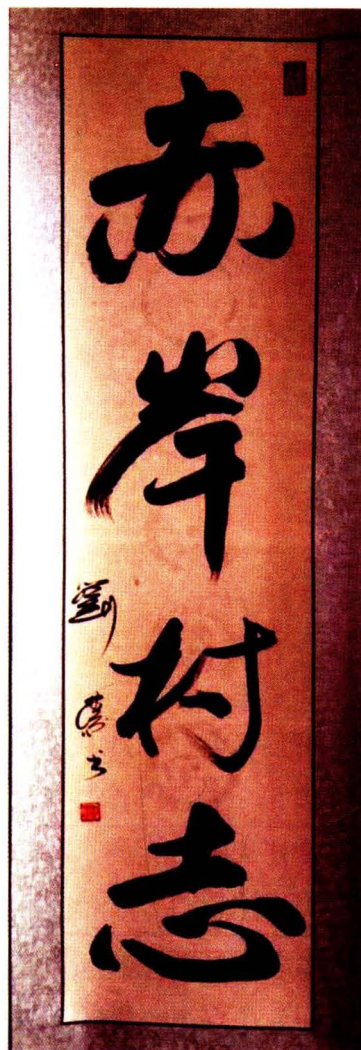 赤岸村志
劉
书